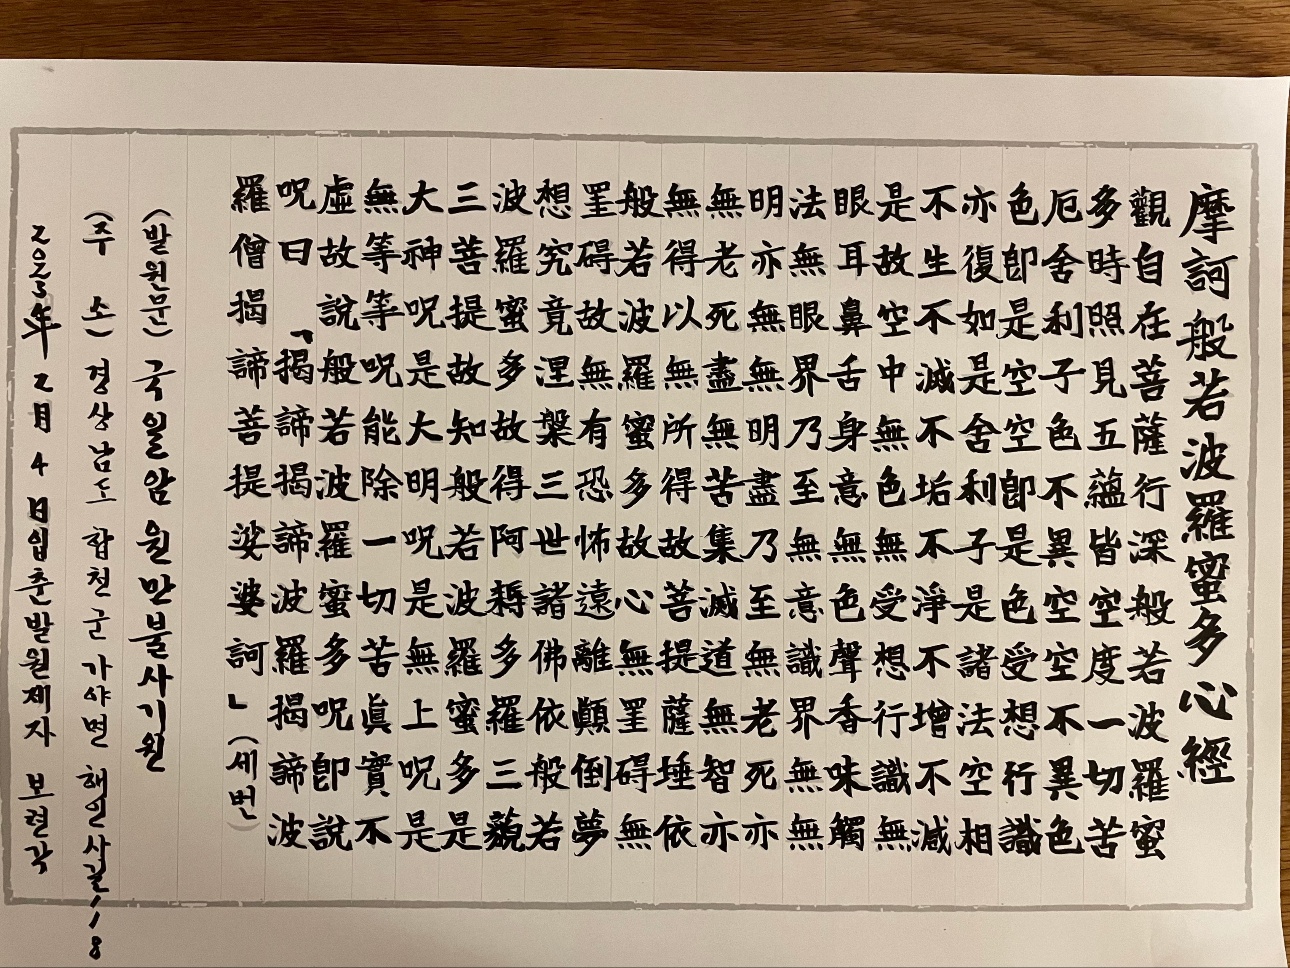 摩訶般若波羅蜜多心經
觀自在菩薩行深般若波羅蜜
多時照見五蘊皆空度一切苦
厄舍利子色不異空空不異色
色卽是空空卽是色受想行識
亦復如是舍利子是諸法空相
不生不滅不垢不淨不增不減
是故空中無色無受想行識無
眼耳鼻舌身意無色聲香味觸
法無眼界乃至無意識界無無
明亦無無明盡乃至無老死亦
無老死盡無苦集滅道無智亦
無得以無所得故菩提薩埵依
般若波羅蜜多故心無罣碍無
罣碍故無有恐怖遠離顚倒夢
想究竟涅槃三世諸佛依般若
波羅蜜多故得阿耨多羅三藐
三菩提故知般若波羅蜜多是
大神呪是大明呪是無上呪是
無等等呪能除一切苦眞實不
虛故說般若波羅蜜多呪卽說
呪曰「揭諦揭諦波羅揭諦波
羅僧揭諦菩提娑婆訶」(세번)
(발원문) 국일암 원만불사기원
(주 소) 경상남도 합천군 가야면 해인사길118
2023年 2月 4日입춘발원제자